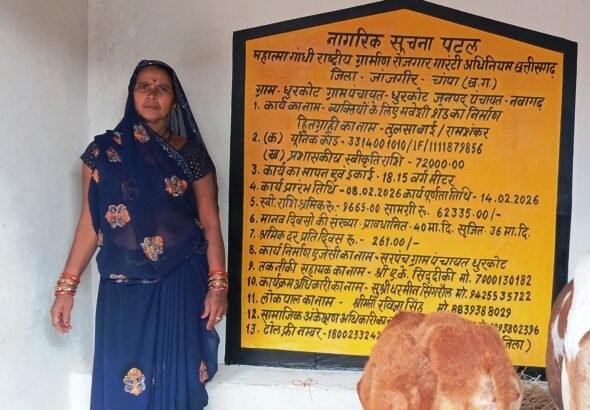 नागरिक सूचना पटल
महात्मा गांधी राष्ट्रीय ग्रामीण रोजगार गारंटी अधिनियम छत्तीसगढ़
जिला - जांजगीर - चांपा (छ.ग.)
ग्राम - धुरकोट ग्राम पंचायत - धुरकोट जनपद पंचायत - नवागढ़
1. कार्य का नाम - व्यक्तियों के लिए मवेशी शेड का निर्माण
हितग्राही का नाम - तुलसाबाई / रामशंकर
2. (क) यूनिक कोड - 3314001010/IF/1111879856
(ख) प्रशासकीय स्वीकृति राशि - 72000.00
3. कार्य का मापन एवं इकाई - 18.15 वर्ग मीटर
4. कार्य प्रारंभ तिथि - 08.02.2026 कार्य पूर्णता तिथि - 14.02.2026
5. स्वी. राशि श्रमिक रु. - 9665.00 सामग्री रु. 62335.00/-
6. मानव दिवसों की संख्या - प्रावधानित - 40 मा.दि. सृजित - 36 मा.दि.
7. श्रमिक दर प्रति दिवस रु. - 261.00/-
8. कार्य निर्माण एजेंसी का नाम - सरपंच ग्राम पंचायत धुरकोट
9. तकनीकी सहायक का नाम - श्री ई.के. सिद्दीकी मो. 7000130182
10. कार्यक्रम अधिकारी का नाम - सुश्री धरमीन सिंगरौल मो. 94255 35722
11. लोकपाल का नाम - श्रीमती रविन्द्रा सिंह मो. 8839388029
12. सामाजिक अंकेक्षण अधिकारी का 93802396
13. टोल फ्री नम्बर - 1800233242 जिला)